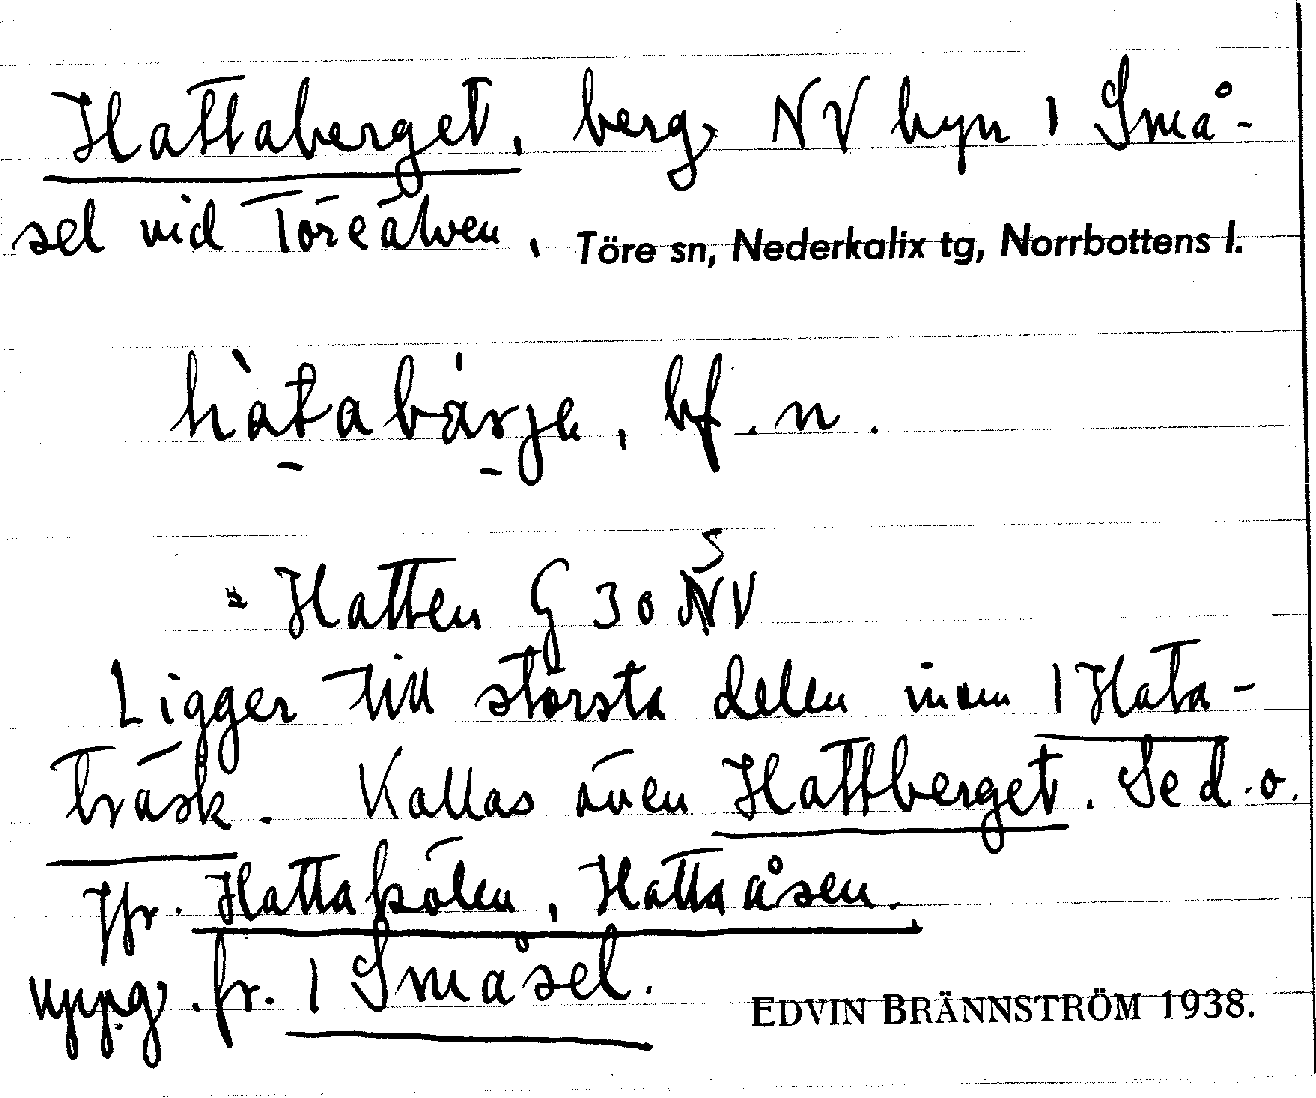 Hattaberget, berg NV byn 1 Små-
sel vid Töreälven. Töre sn, Nederkalix tg, Norrbottens l.
hàtabárja, bf. n.
= Hatten G 30 SV
Ligger till största delen inom 1 Hata-
träsk. Kallas även Hattberget. Se d. o.
Jfr. Hattakölen, Hattaåsen.
uppg. fr. 1 Småsel.
EDVIN BRÄNNSTRÖM 1938.